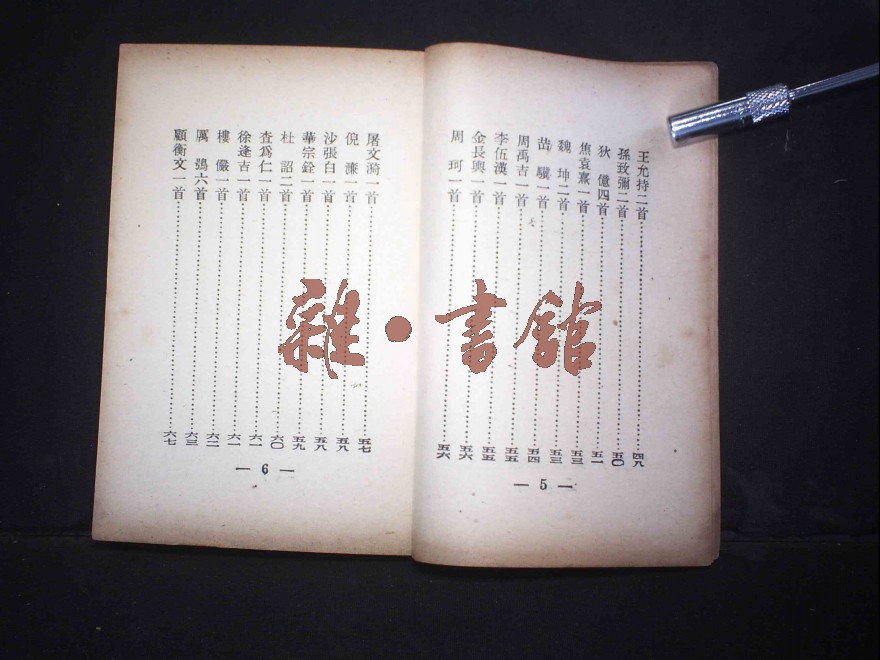 王允持二首 四八
孫致彌二首 五〇
狄億四首 五一
焦袁熹一首 五三
魏坤二首 五三
苗驥一首 五四
周禹吉一首 五五
李伍漢一首 五五
金長輿一首 五六
周珂一首 五六
— 5 —
屠文漪一首 五七
倪濂一首 五八
沙張白一首 五八
華宗銓一首 五九
杜詔二首 六〇
査爲仁一首 六一
徐逢吉一首 六一
樓儼一首 六二
厲鶚六首 六三
顧衡文一首 六七
— 6 —
雜·書館